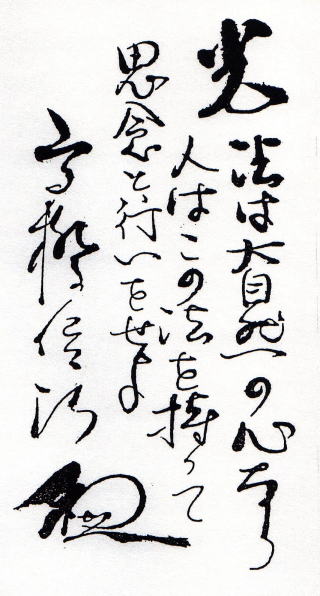 光
法は大自然の心なり
人はこの法を持って
思念と行いをせよ
高橋信次